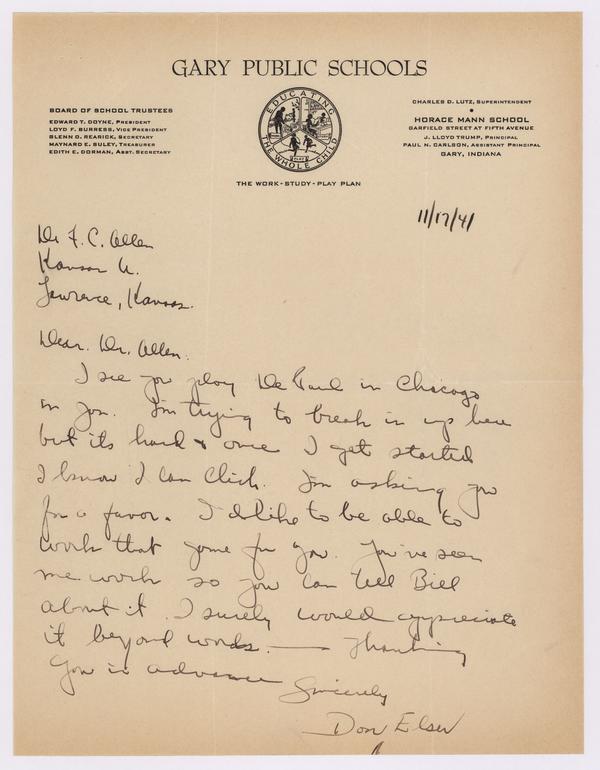 GARY PUBLIC SCHOOLS
BOARD OF SCHOOL TRUSTEES
EDWARD T. DOYNE, PRESIDENT
LOYD F. BURRESS, VICE PRESIDENT
GLENN O. REARICK, SECRETARY
MAYNARD E. SULEY, TREASURER
EDITH E. DORMAN, ASST. SECRETARY
EDUCATING
THE WHOLE CHILD
THE WORK-STUDY-PLAY PLAN
CHARLES D. LUTZ, SUPERINTENDENT
HORACE MANN SCHOOL
GARFIELD STREET AT FIFTH AVENUE
J. LLOYD TRUMP, PRINCIPAL
PAUL N. CARLSON, ASSISTANT PRINCIPAL
GARY, INDIANA
11/17/41
Dr F. C. Allen
Kansas U.
Lawrence, Kansas.
Dear. Dr. Allen.
I see you play De Paul in Chicago
in Jan. I'm trying to break in up here
but its hard & once I get started
I know I can Click. I'm asking you
for a favor. I'd like to be able to
work that game for you. You've seen
me work so you can tell Bill
about it. I surely would appreciate
it beyond words. — Thanking
You in advance
Sincerely
Don Elser